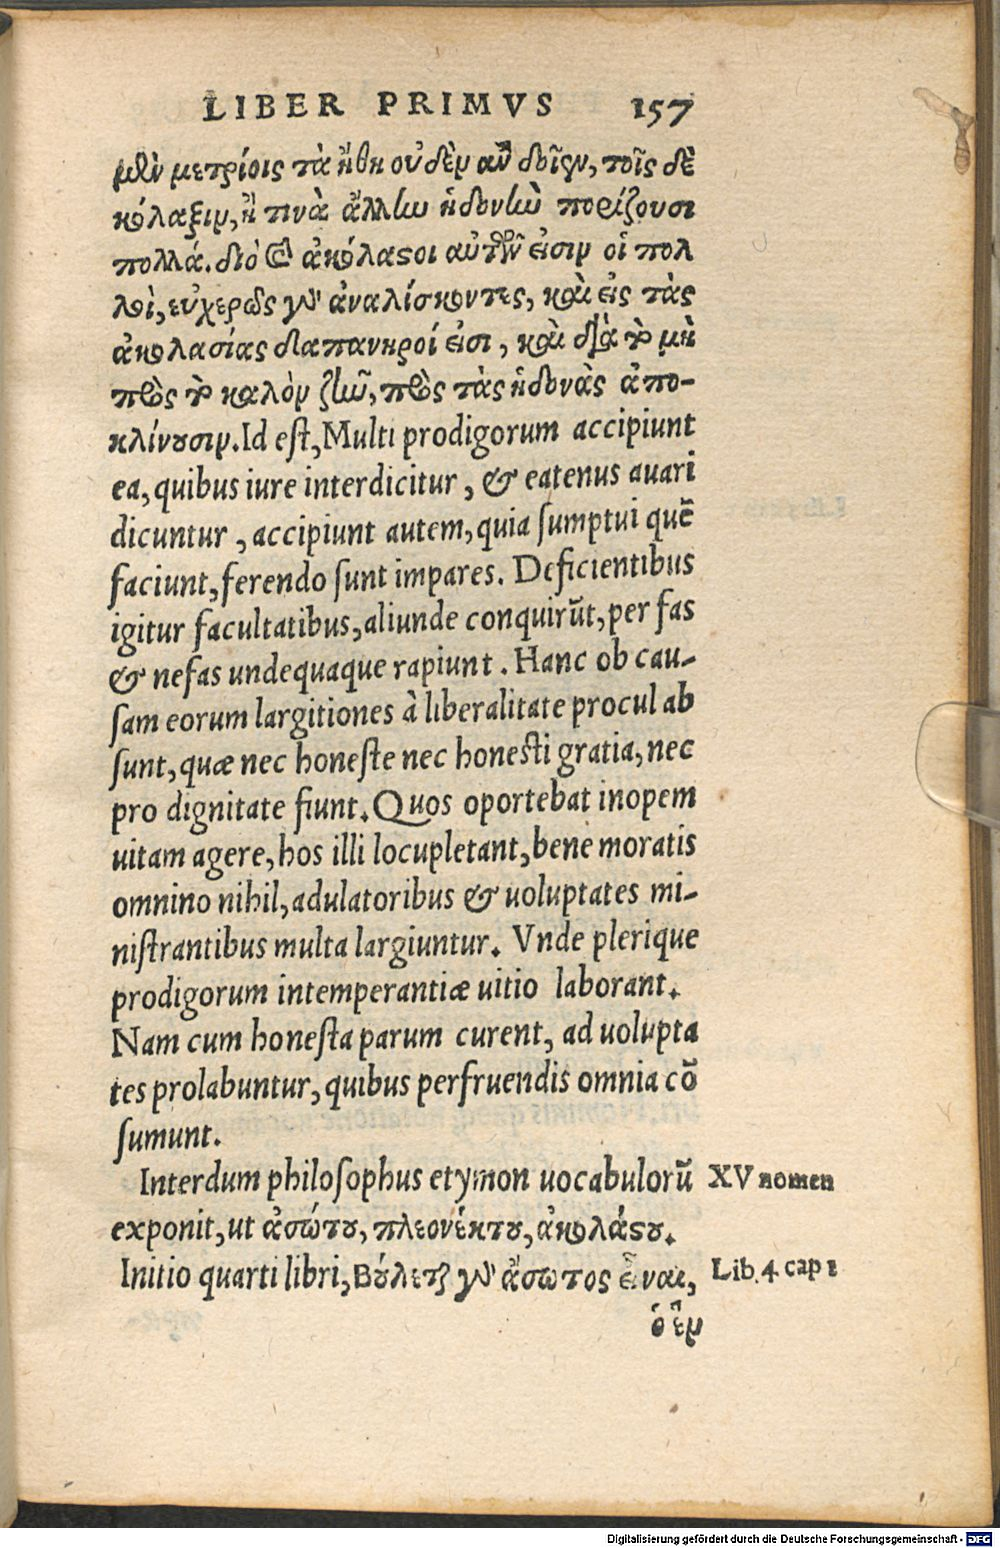 LIBER PRIMVS 157
μὲν μετρίοις τὰ ἤθη οὐδὲν ἂν δοῖεν, τοῖς δὲ
κόλαξιν, ἤ τινὰ ἄλλην ἡδονὴν πορίζουσι
πολλά. διὸ καὶ ἀκόλαστοι αὐτῶν εἰσιν οἱ πολ
λοὶ, εὐχερῶς γὰρ ἀναλίσκοντες, καὶ εἰς τὰς
ἀκολασίας δαπανηροί εἰσι, καὶ διὰ τὸ μὴ
πρὸς τὸ καλὸν ζῆν, πρὸς τὰς ἡδονὰς ἀπο-
κλίνουσιν. Id eſt, Multi prodigorum accipiunt
ea, quibus iure interdicitur, & eatenus auari
dicuntur, accipiunt autem, quia ſumptui quẽ
faciunt, ferendo ſunt impares. Deficientibus
igitur facultatibus, aliunde conquirũt, per fas
& nefas undequaque rapiunt. Hanc ob cau-
ſam eorum largitiones à liberalitate procul ab
ſunt, quæ nec honeſte nec honeſti gratia, nec
pro dignitate fiunt. Quos oportebat inopem
uitam agere, hos illi locupletant, bene moratis
omnino nihil, adulatoribus & uoluptates mi-
niſtrantibus multa largiuntur. Vnde plerique
prodigorum intemperantiæ uitio laborant.
Nam cum honeſta parum curent, ad uolupta
tes prolabuntur, quibus perfruendis omnia cõ
ſumunt.
Interdum philoſophus etymon uocabulorũ XV nomen
exponit, ut ἀσώτου, πλεονέκτου, ἀκολάστου.
Initio quarti libri, Βούλεται γὰρ ἄσωτος εἶναι, Lib. 4 cap 1
ὁ ἓν